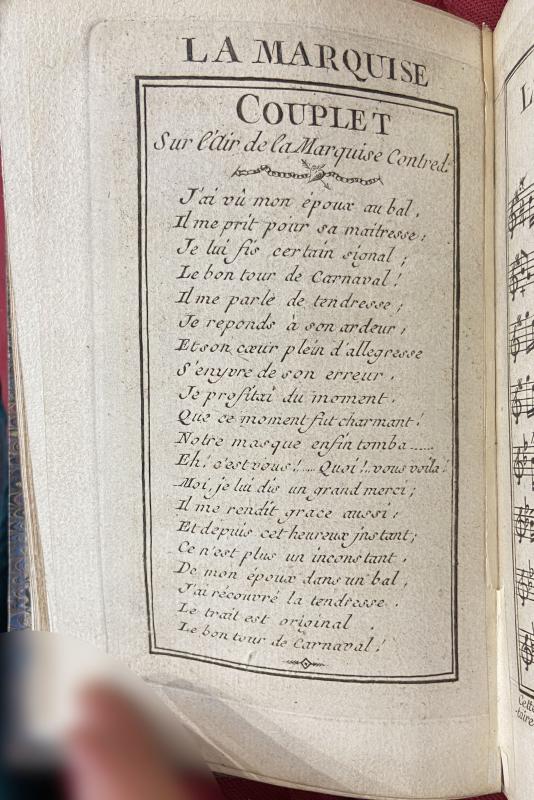 LA MARQUISE
COUPLET
Sur l'Air de la Marquise Contred.
J'ai vû mon époux au bal,
Il me prit pour sa maitresse;
Je lui fis certain signal;
Le bon tour de Carnaval!
Il me parle de tendresse;
Je reponds à son ardeur;
Et son cœur plein d'allegresse
S'enyvre de son erreur.
Je profitai du moment.
Que ce moment fut charmant!
Notre masque enfin tomba......
Eh! c'est vous!.... Quoi!..vous voila!
Moi, je lui dis un grand merci;
Il me rendit grace aussi;
Et depuis cet heureux jnstant;
Ce n'est plus un inconstant.
De mon époux dans un bal,
J'ai récouvré la tendresse.
Le trait est original,
Le bon tour de Carnaval!
L
Cette
-taire